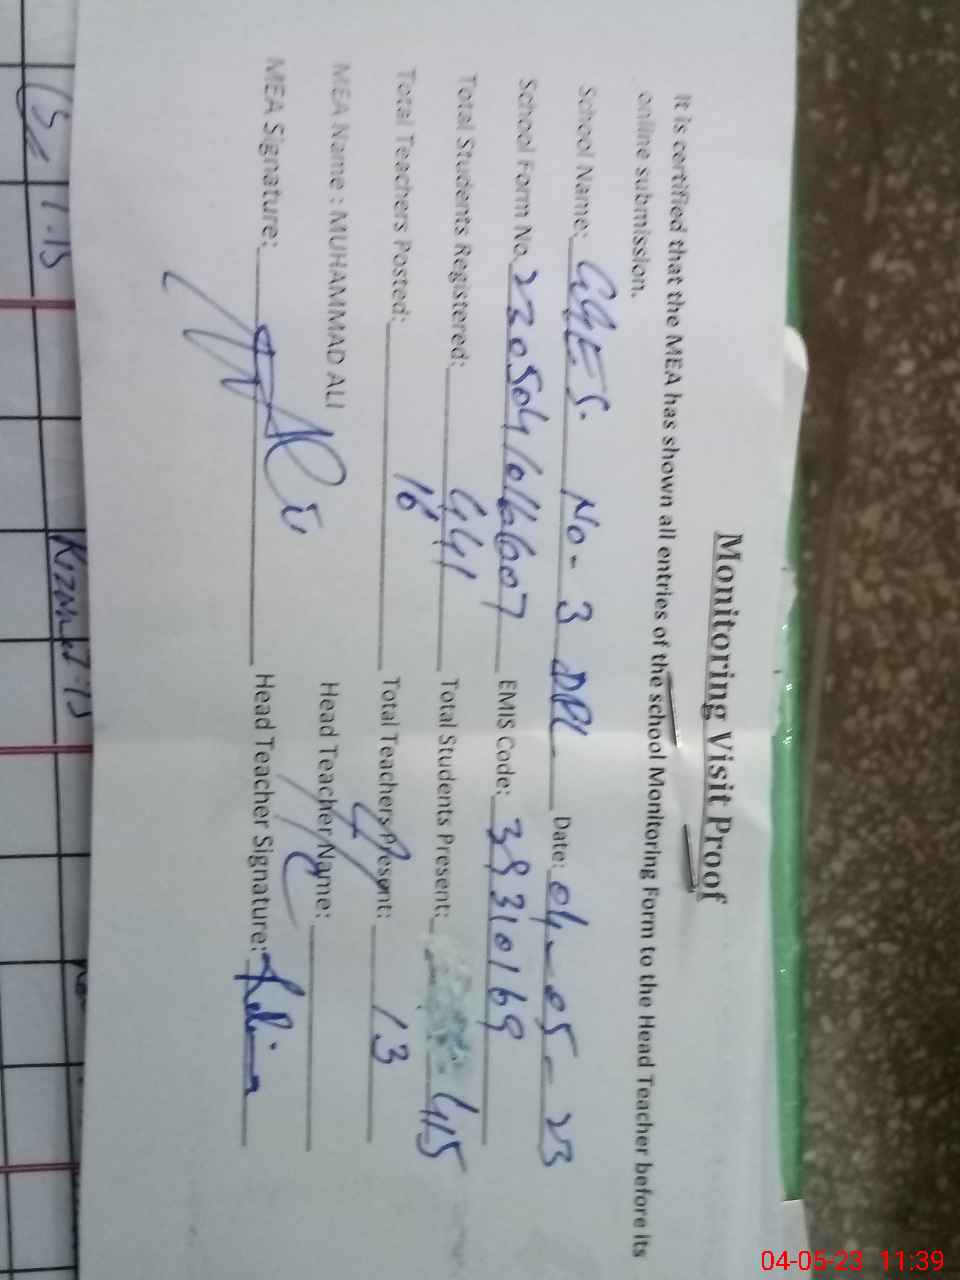 Monitoring Visit Proof
It is certified that the MEA has shown all entries of the school Monitoring Form to the Head Teacher before its
online submission.
School Name: GGES. No-3 DPL Date: 04-05-23
School Form No. 230504101616607 EMIS Code: 38310169
Total Students Registered: 441 Total Students Present: 415
Total Teachers Posted: 16 Total Teachers Present: 13
MEA Name : MUHAMMAD ALI Head Teacher Name:
MEA Signature: Head Teacher Signature:
04-05-23 11:39